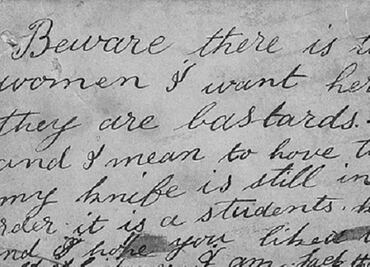 Beware there is t
women I want her
they are bastards.
and I mean to hove t
my knife is still in
rder it is a students.
nd I hope you liked
I am